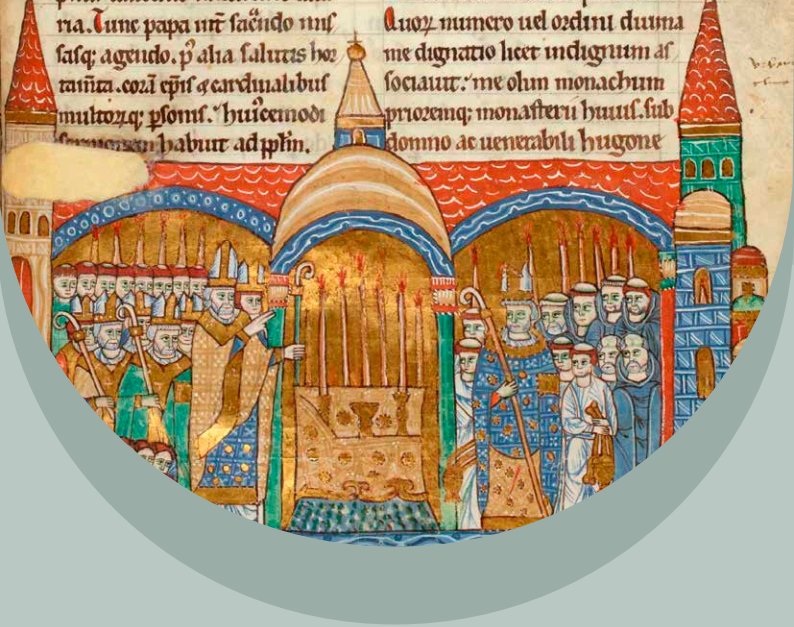 ria. Tunc papa int̄ sac̄ndo mis
sasq; agendo. p̓ alia salutis hor
tam̄ta. corā ep̄is & cardinalibus
multorq; psonis. hui᾽cemodi
habuit ad pplm̄.
Quoꝝ numero uel ordini diuina
me dignatio licet indignum as
sociauit. me olim monachum
prioremq; monasterii huius. sub
domno ac uenerabili hugone